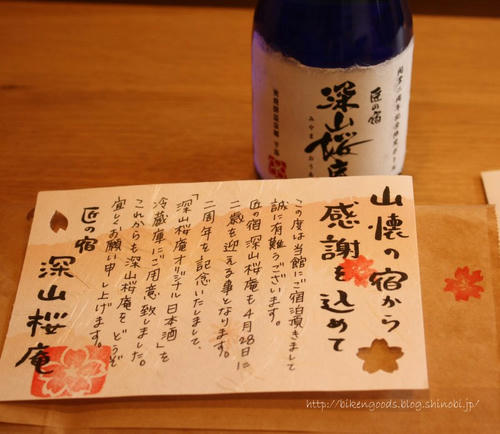 匠の宿
深山桜庵
みやまおうあん
山懐の宿から
感謝を込めて
この度は当館にご宿泊頂きまして
誠に有難うございます。
匠の宿 深山桜庵も4月28日に
二歳を迎える事となります。
二周年を記念いたしまして、
「深山桜庵オリジナル日本酒」を
冷蔵庫にご用意致しました。
これからも深山桜庵をどうぞ
宜しくお願い申し上げます。
匠の宿 深山桜庵
http://bikengoods.blog.shinobi.jp/